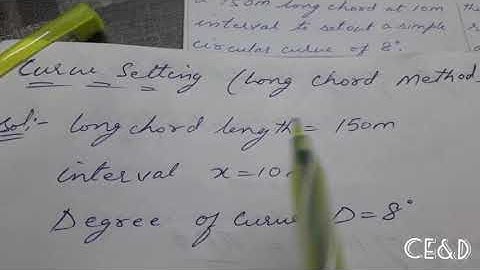 a 150m long chord at 10m
interval to set out a simple
circular curve of 8°.
Curve Setting (Long chord method
Sol:- Long chord length = 150m
interval x = 10
Degree of curve D = 8°
CE&D